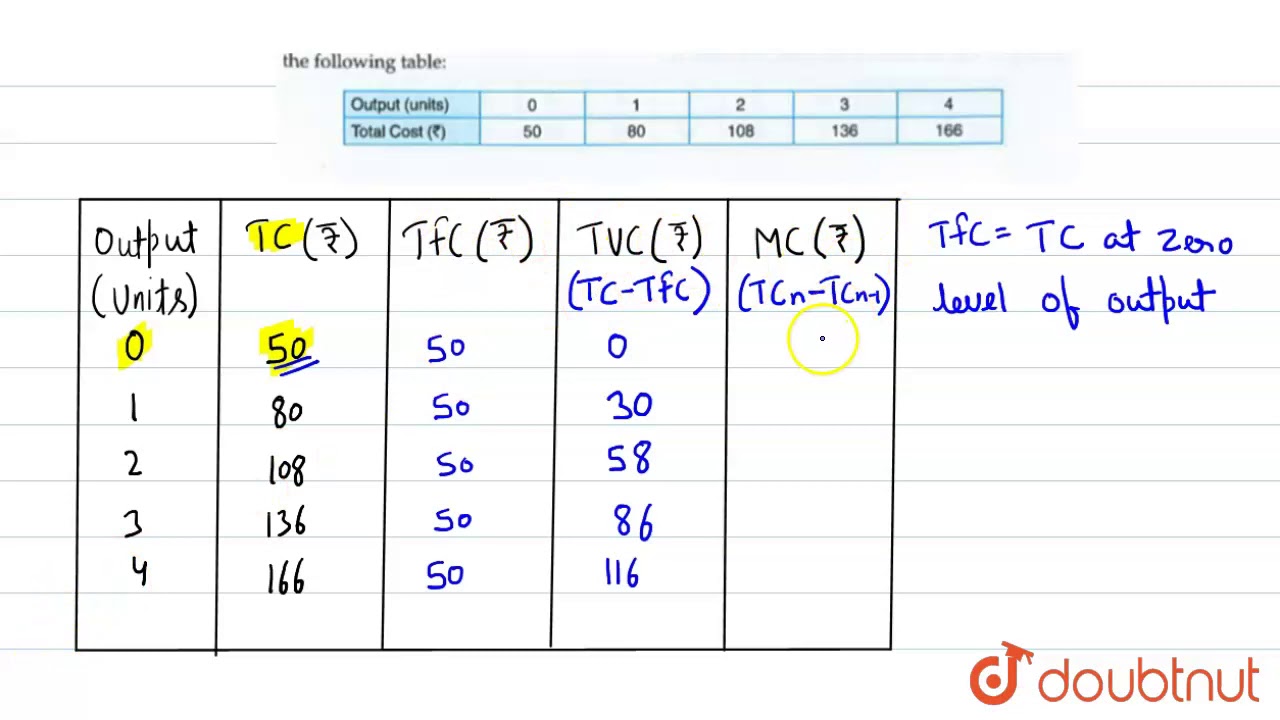 the following table:
Output (units) 0 1 2 3 4
Total Cost (₹) 50 80 108 136 166
Output (Units) TC (₹) TfC (₹) TVC (₹) (TC-TfC) MC (₹) (TCn-TCn-1)
0 50 50 0
1 80 50 30
2 108 50 58
3 136 50 86
4 166 50 116
TfC = TC at zero
level of output
doubtnut